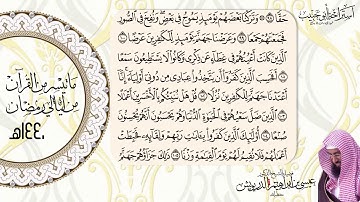 حَقًّا ٩٨ وَتَرَكْنَا بَعْضَهُمْ يَوْمَئِذٍ يَمُوجُ فِي بَعْضٍ وَنُفِخَ فِي الصُّورِ
فَجَمَعْنَٰهُمْ جَمْعًا ٩٩ وَعَرَضْنَا جَهَنَّمَ يَوْمَئِذٍ لِّلْكَٰفِرِينَ عَرْضًا ١٠٠
الَّذِينَ كَانَتْ أَعْيُنُهُمْ فِي غِطَآءٍ عَن ذِكْرِي وَكَانُوا لَا يَسْتَطِيعُونَ سَمْعًا
١٠١ أَفَحَسِبَ الَّذِينَ كَفَرُوٓا أَن يَتَّخِذُوا عِبَادِي مِن دُونِيٓ أَوْلِيَآءَ إِنَّآ
أَعْتَدْنَا جَهَنَّمَ لِلْكَٰفِرِينَ نُزُلًا ١٠٢ قُلْ هَلْ نُنَبِّئُكُم بِالْأَخْسَرِينَ أَعْمَٰلًا
١٠٣ الَّذِينَ ضَلَّ سَعْيُهُمْ فِي الْحَيَوٰةِ الدُّنْيَا وَهُمْ يَحْسَبُونَ أَنَّهُمْ يُحْسِنُونَ
صُنْعًا ١٠٤ أُولَٰٓئِكَ الَّذِينَ كَفَرُوا بِـَٔايَٰتِ رَبِّهِمْ وَلِقَآئِهِ فَحَبِطَتْ
أَعْمَٰلُهُمْ فَلَا نُقِيمُ لَهُمْ يَوْمَ الْقِيَٰمَةِ وَزْنًا ١٠٥ ذَٰلِكَ جَزَآؤُهُمْ جَهَنَّمُ
ما تيسر من القرآن
من ليالي رمضان
١٤٤٠هـ